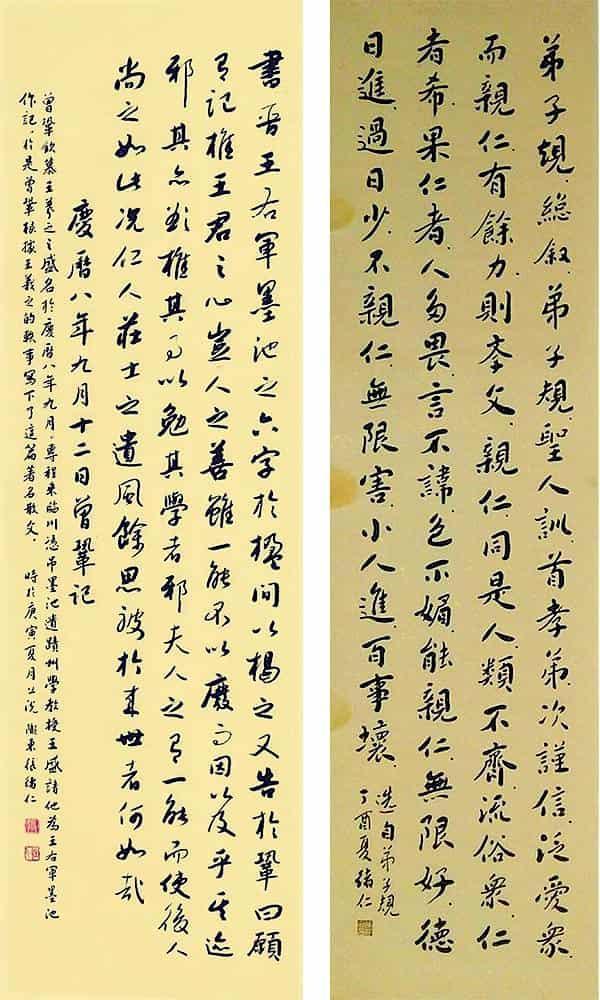 書晉王右軍墨池之六字於楹間以揭之又告於鞏曰願
有記推王君之心豈人之善雖一能不以廢而因以及乎其迹
邪其亦欲推其事以勉其學者邪夫人之有一能而使後人
尚之如此況仁人莊士之遺風餘思被於來世者何如哉
慶曆八年九月十二日曾鞏記
曾鞏欽慕王羲之之盛名於慶曆八年九月,專程來臨川憑弔墨池遺蹟州學教授王盛請他為王右軍墨池
作記,於是曾鞏根據王羲之的軼事寫下了這篇著名散文. 時於庚寅夏月上浣 緒仁
弟子規.總叙.弟子規.聖人訓.首孝弟.次謹信.泛愛衆.
而親仁.有餘力.則孝父.親仁.同是人.類不齊.流俗衆.仁
者希.果仁者.人多畏.言不諱.色不媚.能親仁.無限好.德
日進.過日少.不親仁.無限害.小人進.百事壞.
選自弟子規
丁酉夏 緒仁